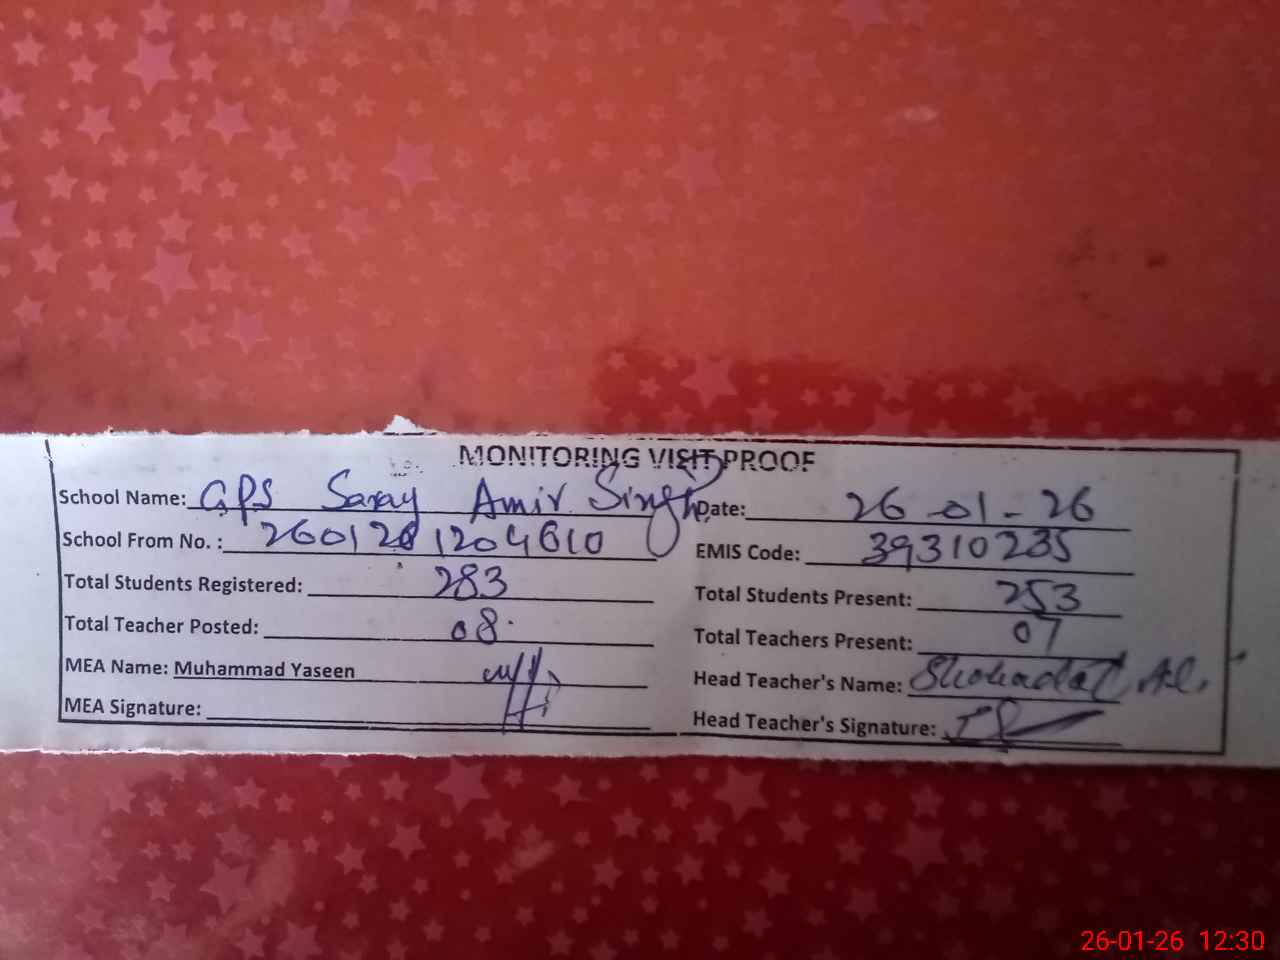 MONITORING VISIT PROOF
School Name: GPS Saray Amir Singh Date: 26-01-26
School From No. : 2601281204610 EMIS Code: 39310235
Total Students Registered: 283 Total Students Present: 253
Total Teacher Posted: 08 Total Teachers Present: 07
MEA Name: Muhammad Yaseen Head Teacher's Name: Shahadat Ali
MEA Signature: Head Teacher's Signature:
26-01-26 12:30